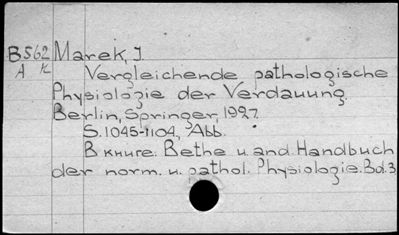 B562 Marek, J.
A K Vergleichende pathologische
Physiologie der Verdauung.
Berlin, Springer, 1927.
S. 1045-1104, Abb.
В книге: Bethe u. and. Handbuch
der norm. u. pathol. Physiologie. Bd.3